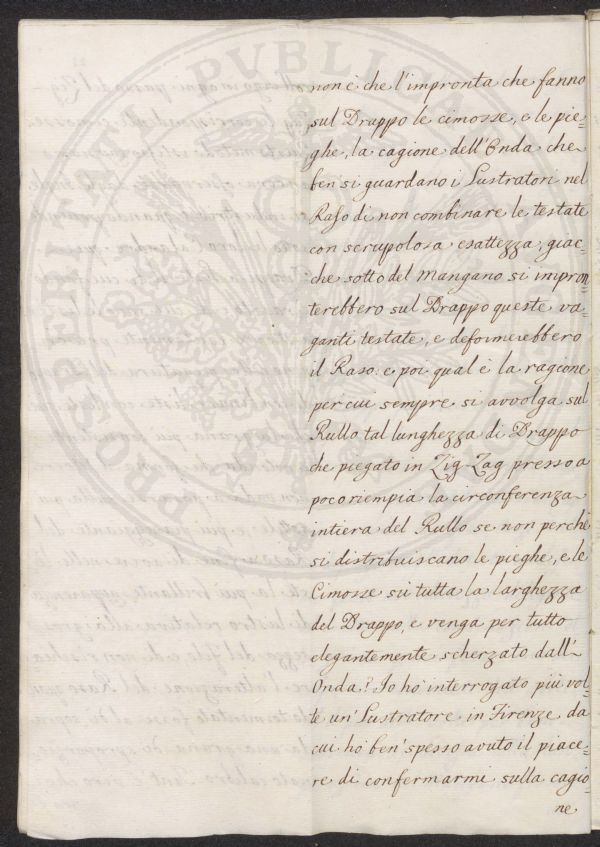 non è che l'impronta che fanno
sul Drappo le cimosse, e le pie=
ghe, la cagione dell'Onda che
ben si guardano i Lustratori nel
Raso di non combinare le testate
con scrupolosa esattezza, giac=
che sotto del mangano si impron=
terebbero sul Drappo queste va=
ganti testate, e deformerebbero
il Raso: e poi qual è la ragione
per cui sempre si avvolga sul
Rullo tal lunghezza di Drappo
che piegato in Zig-Zag presso a
poco riempia la circonferenza
intiera del Rullo se non perchè
si distribuiscano le pieghe, e le
Cimosse su tutta la larghezza
del Drappo, e venga per tutto
elegantemente scherzato dall'=
Onda? Io hò interrogato più vol=
te un' Lustratore in Firenze da
cui hò ben' spesso avuto il piace=
re di confermarmi sulla cagio=
ne
PROSPERITATI PUBLICAE